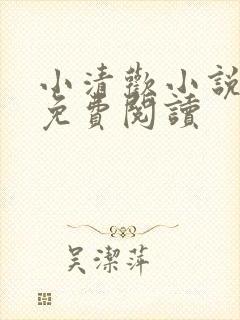 小清歡小說
免費閱讀
吳潔萍